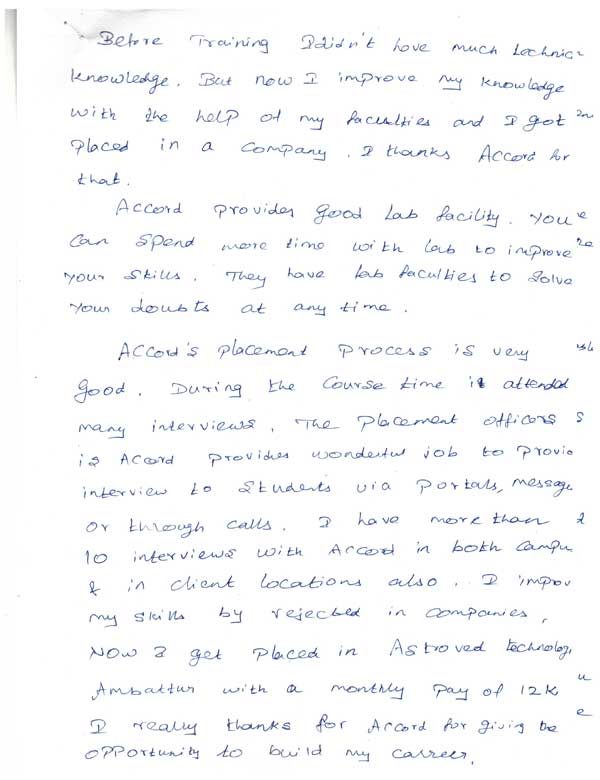 Before Training I didn't have much technic
knowledge. But now I improve my knowledge
with the help of my faculties and I got
placed in a company. I thanks Accord for
that.
Accord provides good Lab facility. You
can spend more time with lab to improve
your skills. They have lab faculties to solve
your doubts at any time.
Accord's placement process is very
good. During the course time i attended
many interviews. The placement officers
is Accord provides wonderful job to provid
interview to students via portals, message
or through calls. I have more than
10 interviews with Accord in both campu
& in client locations also. I improv
my skills by rejected in companies,
NOW I get placed in Astroved technology
Ambattur with a monthly pay of 12K
I really thanks for Accord for giving the
opportunity to build my carreer.